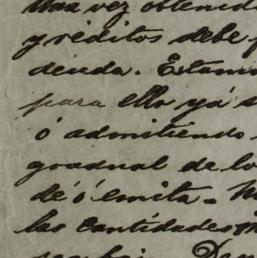 una vez obtenid
y réditos debe p
deuda. Estam
para ello yá s
ó admitiendo
gradual de lo
dé ó emita. 
las cantidades